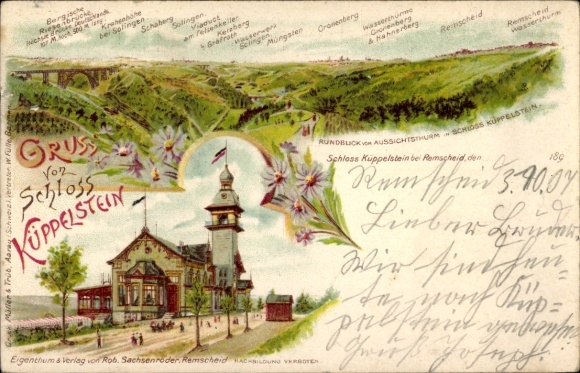 Bergische
Riesenbrücke
höchste Brücke Deutschlands
107 M. hoch, 500 M. lang
Krahenhöhe
bei Solingen
Schaberg
Solingen
Viadukt
am Felzenkeller
Ketzberg
b. Gräfrath
Wasserwerk
Solingen
Müngsten
Cronenberg
Wasserthürme
Cronenberg
& Hahnerberg
Remscheid
Remscheid
Wasserthurm
RUNDBLICK VOM AUSSICHTSTHURM IN SCHLOSS KÜPPELSTEIN.
Gruss
von
Schloss
Küppelstein
Schloss Küppelstein bei Remscheid, den 189
Remscheid 3.90.04
Lieber Bruder.
Wir sind heu-
te nach Küp-
pelstein gewesen
Gruß Joseph.
Geogr. Müller & Trüb, Aarau (Schweiz). Vertreten: W. Fülle, Barmen
Eigenthum & Verlag von Rob. Sachsenröder, Remscheid NACHBILDUNG VERBOTEN.